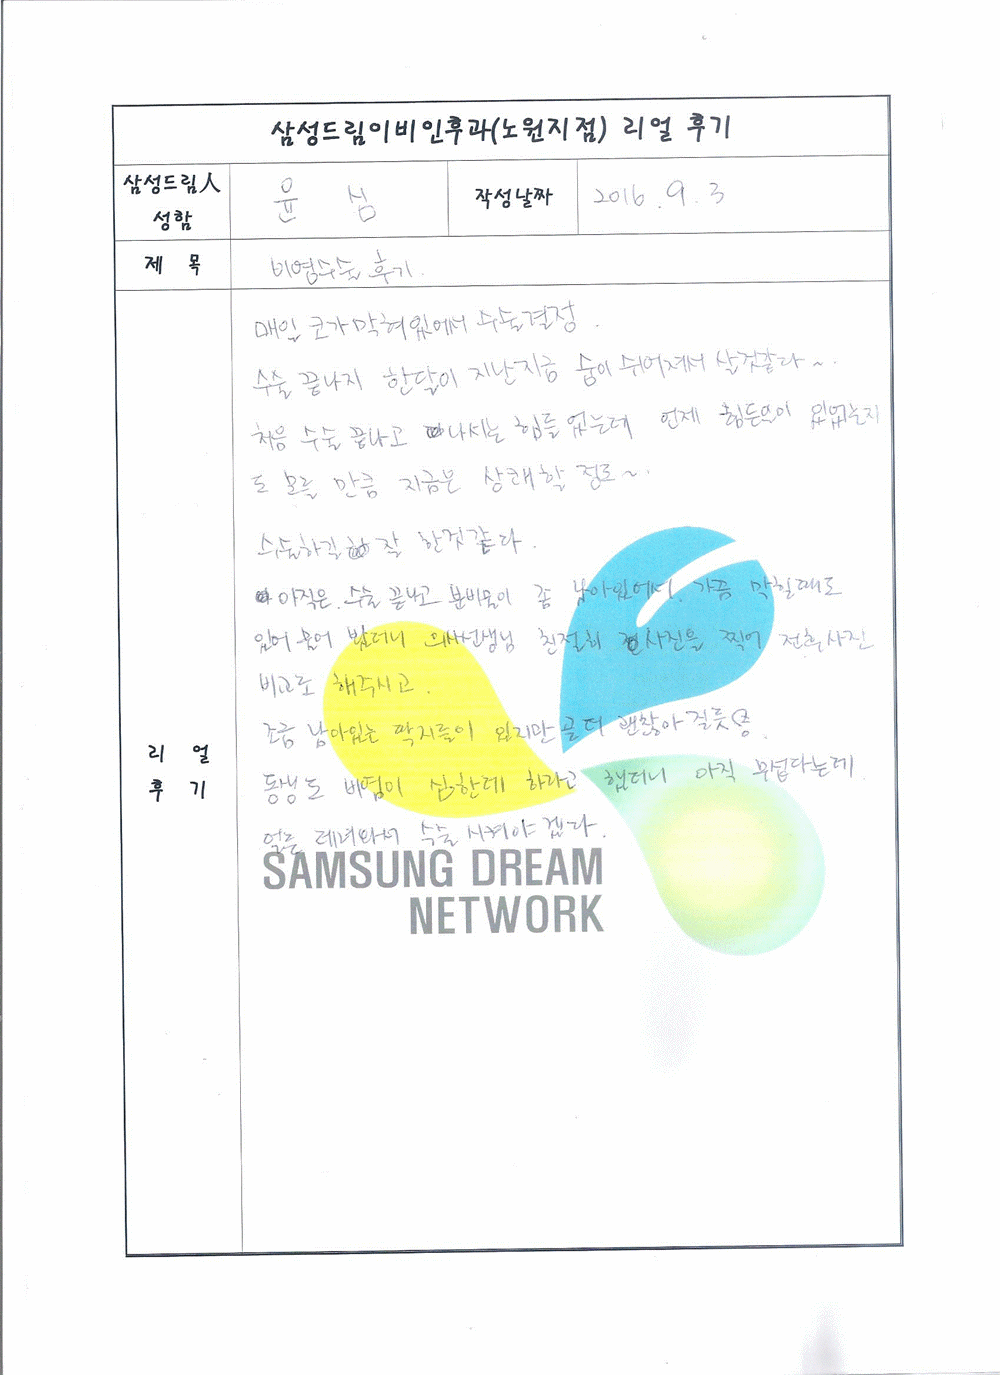 삼성드림이비인후과(노원지점) 리얼 후기
삼성드림人
성함
윤 심
작성날짜
2016. 9. 3
제 목
비염수술 후기.
매일 코가 막혀있에서 수술결정.
수술 끝나지 한달이 지난지금 숨이 쉬어져서 살것같다~.
처음 수술 끝나고 나서는 힘들었는데 언제 힘든일이 있었는지
도 모를 만큼 지금은 상쾌할 정도~.
수술하길 잘 한것같다.
아직은 수술 끝나고 분비물이 좀 남아있에서 가끔 막힐때도
있어 물어 봤더니 의사선생님 친절히 사진을 찍어 전후사진
비교도 해주시고.
조금 남아있는 딱지들이 있지만 곧더 괜찮아 질듯
동생도 비염이 심한데 하라고 했더니 아직 무섭다는데
얼른 데려와서 수술 시켜야 겠다.
리 얼
후 기
SAMSUNG DREAM
NETWORK